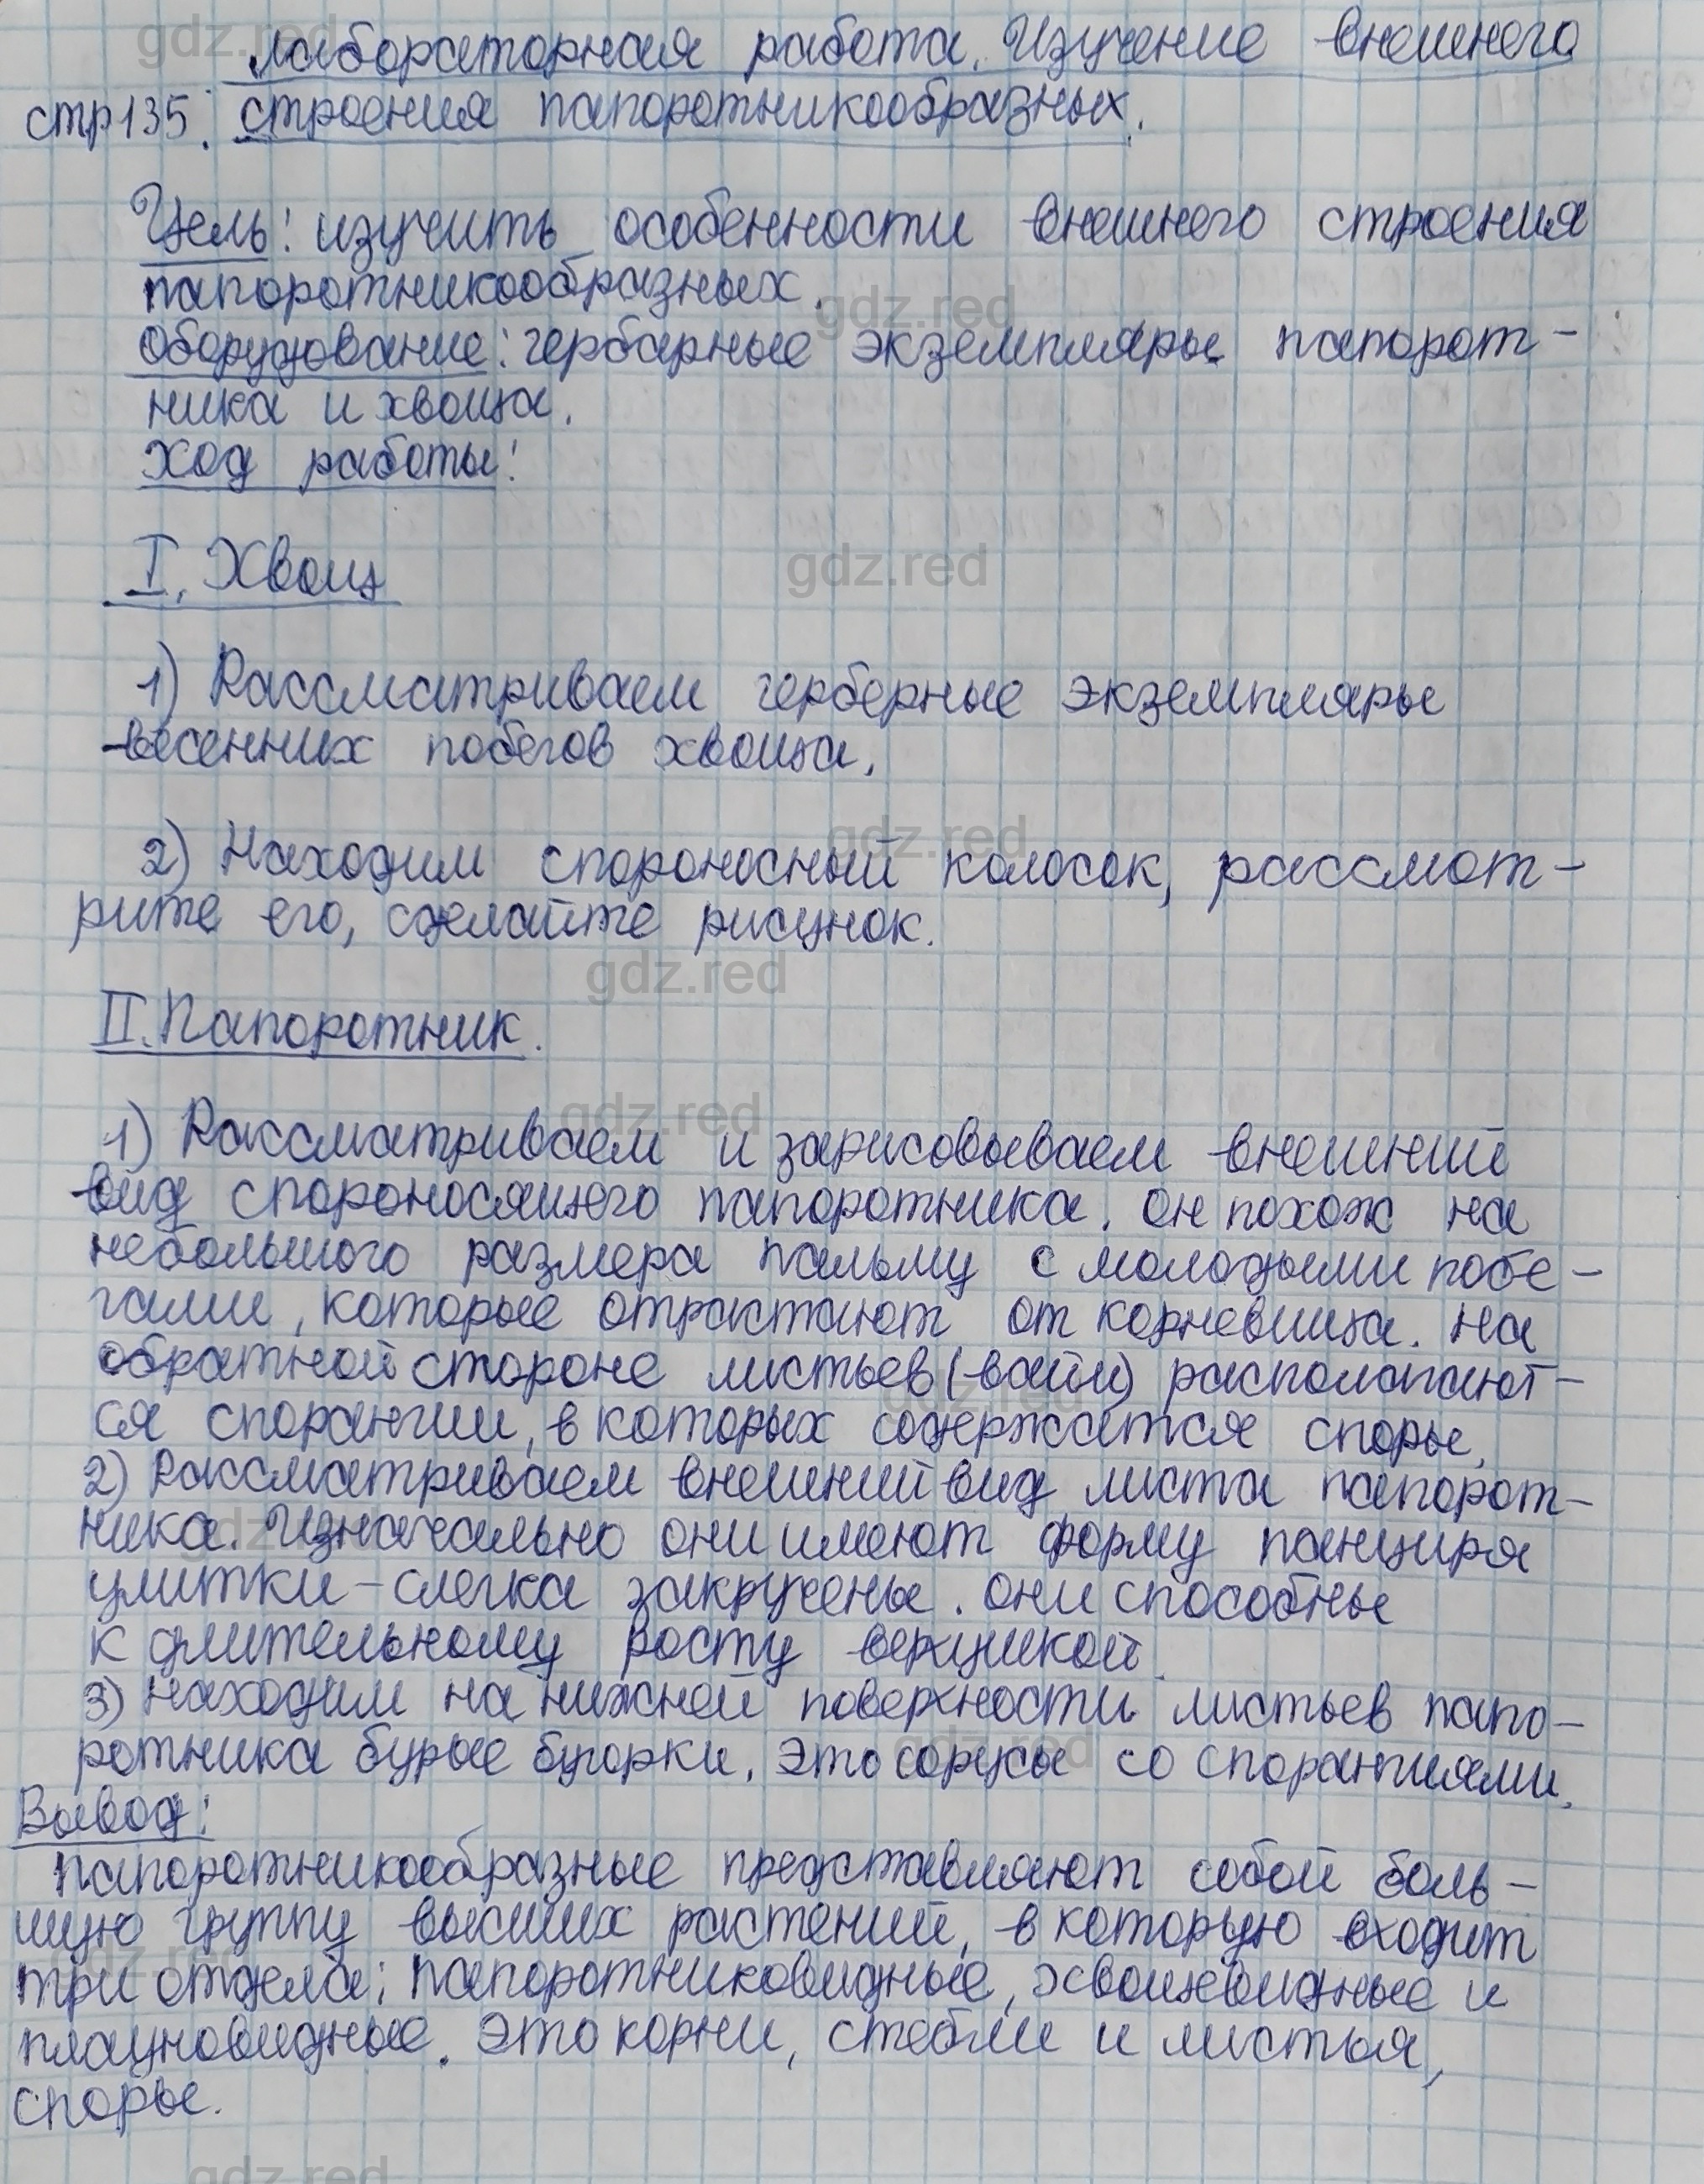 лабораторная работа. Изучение внешнего
стр 135. строения папоротникообразных.
Цель: изучить особенности внешнего строения
папоротникообразных.
оборудование: гербарные экземпляры папорот-
ника и хвоща.
Ход работы:
I. Хвощ
1) Рассматриваем герберные экземпляры
весенних побегов хвоща.
2) Находим спороносный колосок, рассмот-
рите его, сделайте рисунок.
II. Папоротник.
1) Рассматриваем и зарисовываем внешний
вид спороносящего папоротника. Он похож на
небольшого размера пальму с молодыми побе-
гами, которые отрастают от корневища. На
обратной стороне листьев (вайи) располагают-
ся спорангии, в которых содержатся споры.
2) Рассматриваем внешний вид листа папорот-
ника. Изначально они имеют форму панциря
улитки - слегка закручены. Они способны
к длительному росту верхушкой.
3) Находим на нижней поверхности листьев папо-
ротника бурые бугорки. Это сорусы со спорангиями.
Вывод:
Папоротникообразные представляют собой боль-
шую группу высших растений, в которую входит
три отдела: папоротниковидные, хвощевидные и
плауновидные. Это корни, стебли и листья,
споры.
gdz.red
gdz.red
gdz.red
gdz.red
gdz.red
gdz.red
gdz.red
gdz.red
gdz.red
gdz.red
gdz.red